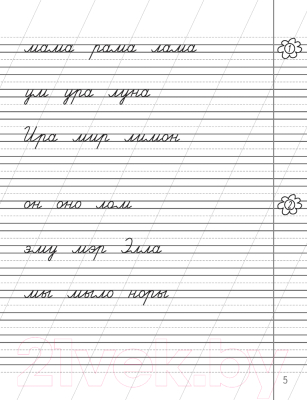 мама рама лама
1
ум ура луна
Ира мир лимон
он оно лом
2
эму мэр Элла
мы мыло норы
5
21vek.by